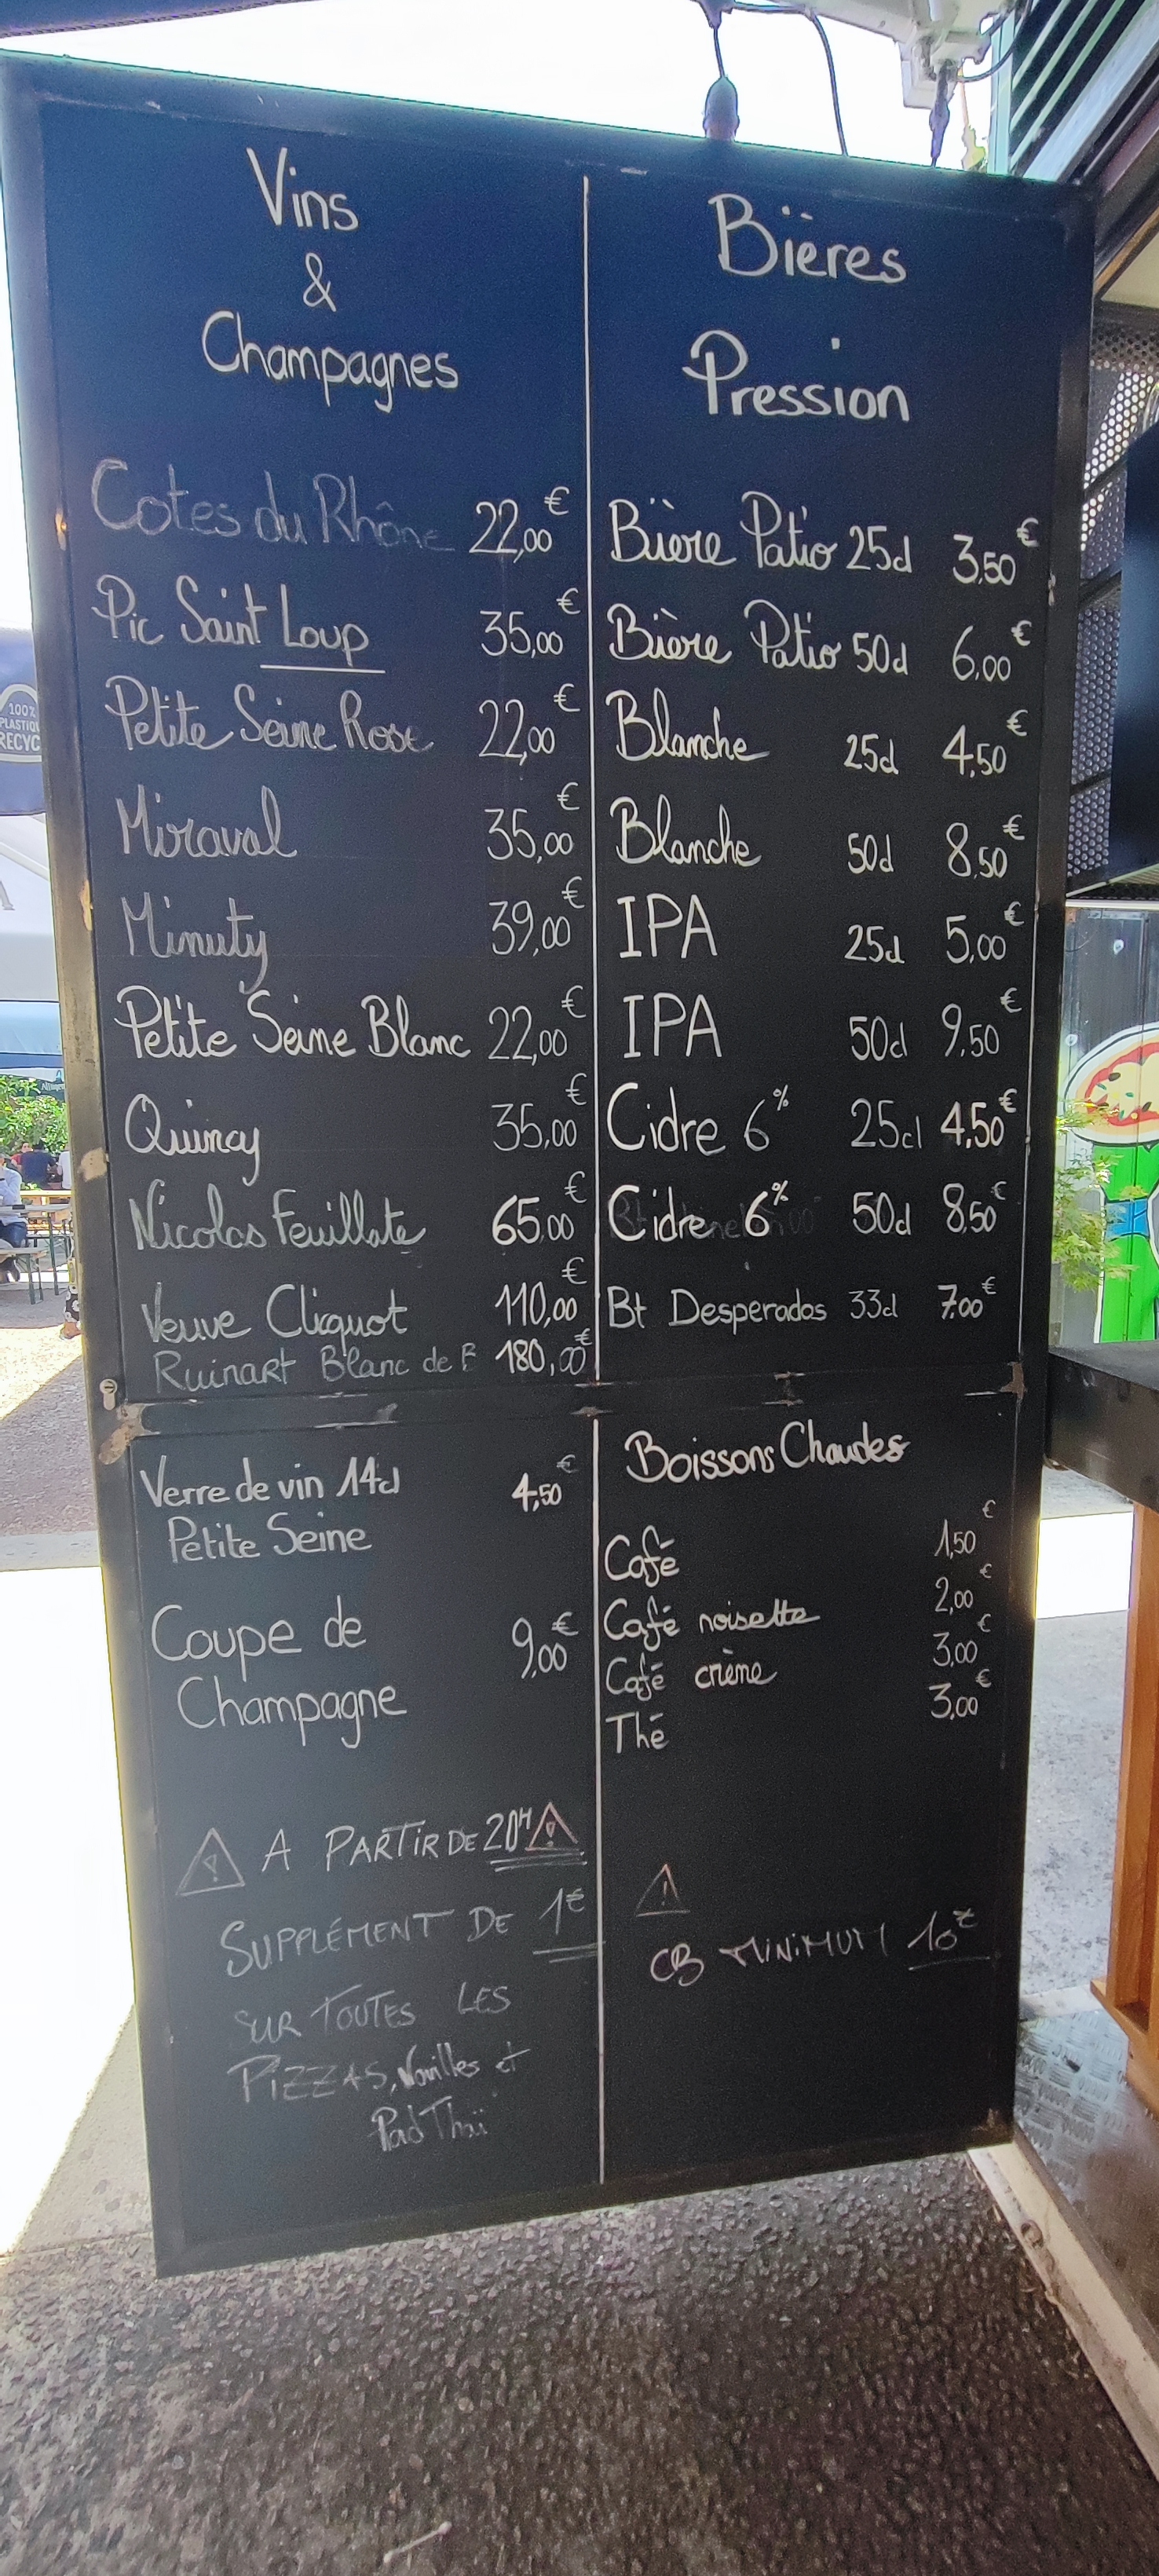 Vins
&
Champagnes
Cotes du Rhône 22,00€
Pic Saint Loup 35,00€
Petite Seine Rose 22,00€
Miraval 35,00€
Minuty 39,00€
Petite Seine Blanc 22,00€
Quincy 35,00€
Nicolas Feuillate 65,00€
Veuve Cliquot 110,00€
Ruinart Blanc de B 180,00€
Verre de vin 14cl 4,50€
Petite Seine
Coupe de 9,00€
Champagne
A PARTIR DE 20H
SUPPLÉMENT DE 1€
SUR TOUTES LES
PIZZAS, Nouilles et
Pad Thaï
Bières
Pression
Bière Patio 25cl 3,50€
Bière Patio 50cl 6,00€
Blanche 25cl 4,50€
Blanche 50cl 8,50€
IPA 25cl 5,00€
IPA 50cl 9,50€
Cidre 6% 25cl 4,50€
Cidre 6% 50cl 8,50€
Bt Desperados 33cl 7,00€
Boissons Chaudes
Café 1,50€
Café noisette 2,00€
Café crème 3,00€
Thé 3,00€
CB MINIMUM 10€
100%
PLASTIQU
RECYC